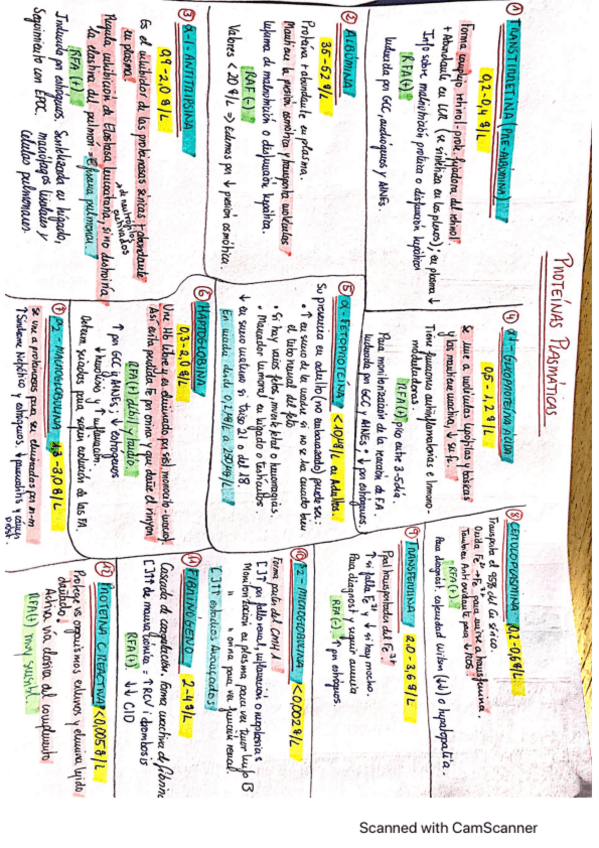 PROTEÍNAS PLASMÁTICAS
① TRANSTIRRETINA (PRE-ALBÚMINA)
0,2-0,4 g/L
Forma complejo retinol-prot. fijadora del retinol.
+ Abundante en LCR (se sintetiza en los plexos); en plasma ↓
Info sobre malnutrición proteica o disfunción hepática
RFA(-)
inducida por GCC, andrógenos y AINEs.
② ALBÚMINA
35-52 g/L
Proteína + abundante en plasma.
Mantiene la presión osmótica y transporta moléculas
informa de malnutrición o disfunción hepática.
RAF(-)
Valores < 20 g/L → edemas por ↓ presión osmótica.
③ α-1-ANTITRIPSINA
0,9-2,0 g/L
Es el inhibidor de las proteinasas séricas + abundante
en plasma.
Regula inhibición de Elastasa leucocitaria, si no destruiría
de neutrófilos activados
la elastina del pulmón = Efisema pulmonar.
RFA(+)
Inducida por estrógenos. Sintetizada en hígado,
Seguimiento con EPOC. macrófagos tisulares y
células pulmonares.
④ α1-GLICOPROTEÍNA ÁCIDA
0,5-1,2 g/L
Se une a moléculas lipófilas y básicas
y las mantiene inactiva, ↓ su fx.
Tiene funciones antiinflamatorias e inmuno-
moduladoras.
RFA(+) pico entre 3-5 día.
Para monitorización de la reacción de FA
inducida por GCC y AINEs; ↓ por estrógenos.
⑤ α-FETOPROTEÍNA < 10 µg/L en Adultos.
Su presencia en adulto (no embarazado) puede ser:
• ↑ en suero de la madre si no se ha cerrado bien
el tubo neural del feto
• Si hay varios fetos, muerte fetal o hemorragias.
• Marcador tumoral en hígado o testículos.
↓ en suero materno si triso 21 o del 18.
⑥ HAPTOGLOBINA
0,3-2,0 g/L
Une Hb libre y es eliminado por sist. monocito-macrof.
Así evita perdida Fe por orina y que dañe el riñón
RFA(+) débil y tardío.
↑ por GCC y AINEs; ↓ estrógenos
↓ hemólisis y ↑ inflamación.
⑦ α2-MACROGLOBULINA 1,3-3,0 g/L
Se une a proteinasas para ser eliminadas por m-m
↑ Síndrome Nefrótico y estrógenos, ↓ pancreatitis y cáncer
prost.
⑧ CERULOPLASMINA 0,2-0,6 g/L
Transporta el 95% del Cu sérico.
Oxida Fe²⁺ → Fe³⁺ para unirse a transferrina.
También Antioxidante para ↓ ROS
RFA(+)
Para diagnóst. enfermedad Wilson (↓↓) o hepatopatía.
⑨ TRANSFERRINA 2,0-3,6 g/L
Ppal transportador del Fe³⁺
↑ si falta Fe y ↓ si hay mucho.
Para diagnost y seguir anemia
RFA(-) ↑ por estrógenos.
⑩ β2-MICROGLOBULINA < 0,002 g/L
Forma parte del CMH I.
[ ]↑ por fallo renal, inflamación o neoplasias
Monitorización en plasma para ver tumor linfo B
" " orina para ver función renal.
[ ]↑ estadios Avanzados
⑪ FIBRINÓGENO 2-4 g/L
Cascada de coagulación. Forma insoluble de fibrina
[ ]↑↑ de manera crónica = ↑ RCV y trombosis
RFA(+) ↓↓ CID
⑫ PROTEINA C REACTIVA < 0,005 g/L
Protege vs organismos extraños y elimina tejido
dañado.
Activa vía clásica del complemento
RFA(+) muy sensible.
Scanned with CamScanner